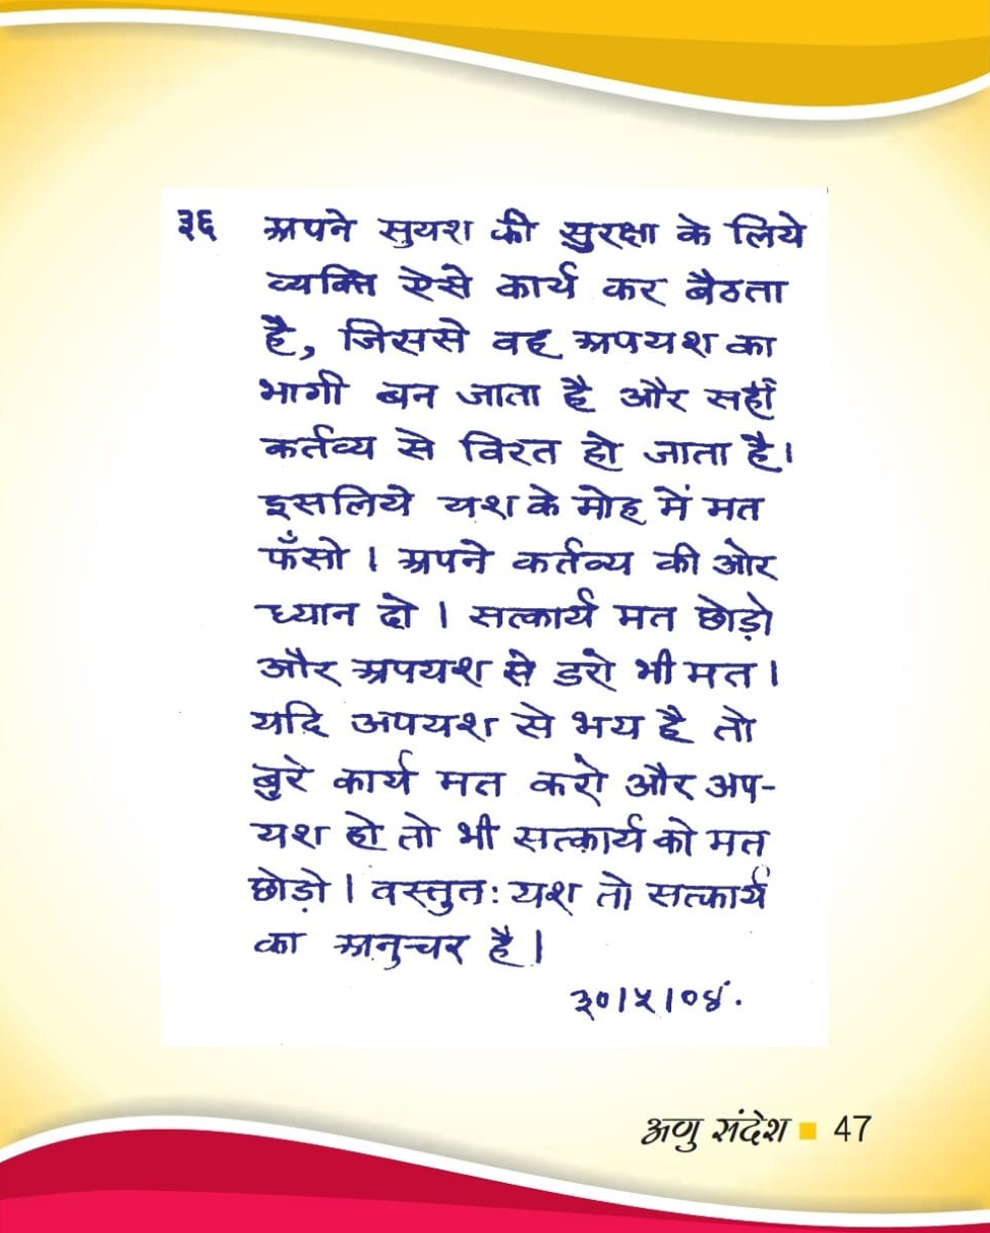 ३६ अपने सुयश की सुरक्षा के लिये
व्यक्ति ऐसे कार्य कर बैठता
है, जिससे वह अपयश का
भागी बन जाता है और सही
कर्तव्य से विरत हो जाता है।
इसलिये यश के मोह में मत
फँसो । अपने कर्तव्य की ओर
ध्यान दो । सत्कार्य मत छोड़ो
और अपयश से डरो भी मत ।
यदि अपयश से भय है तो
बुरे कार्य मत करो और अप-
यश हो तो भी सत्कार्य को मत
छोड़ो । वस्तुतः यश तो सत्कार्य
का अनुचर है।
३०।५।०४.
अणु संदेश ■ 47